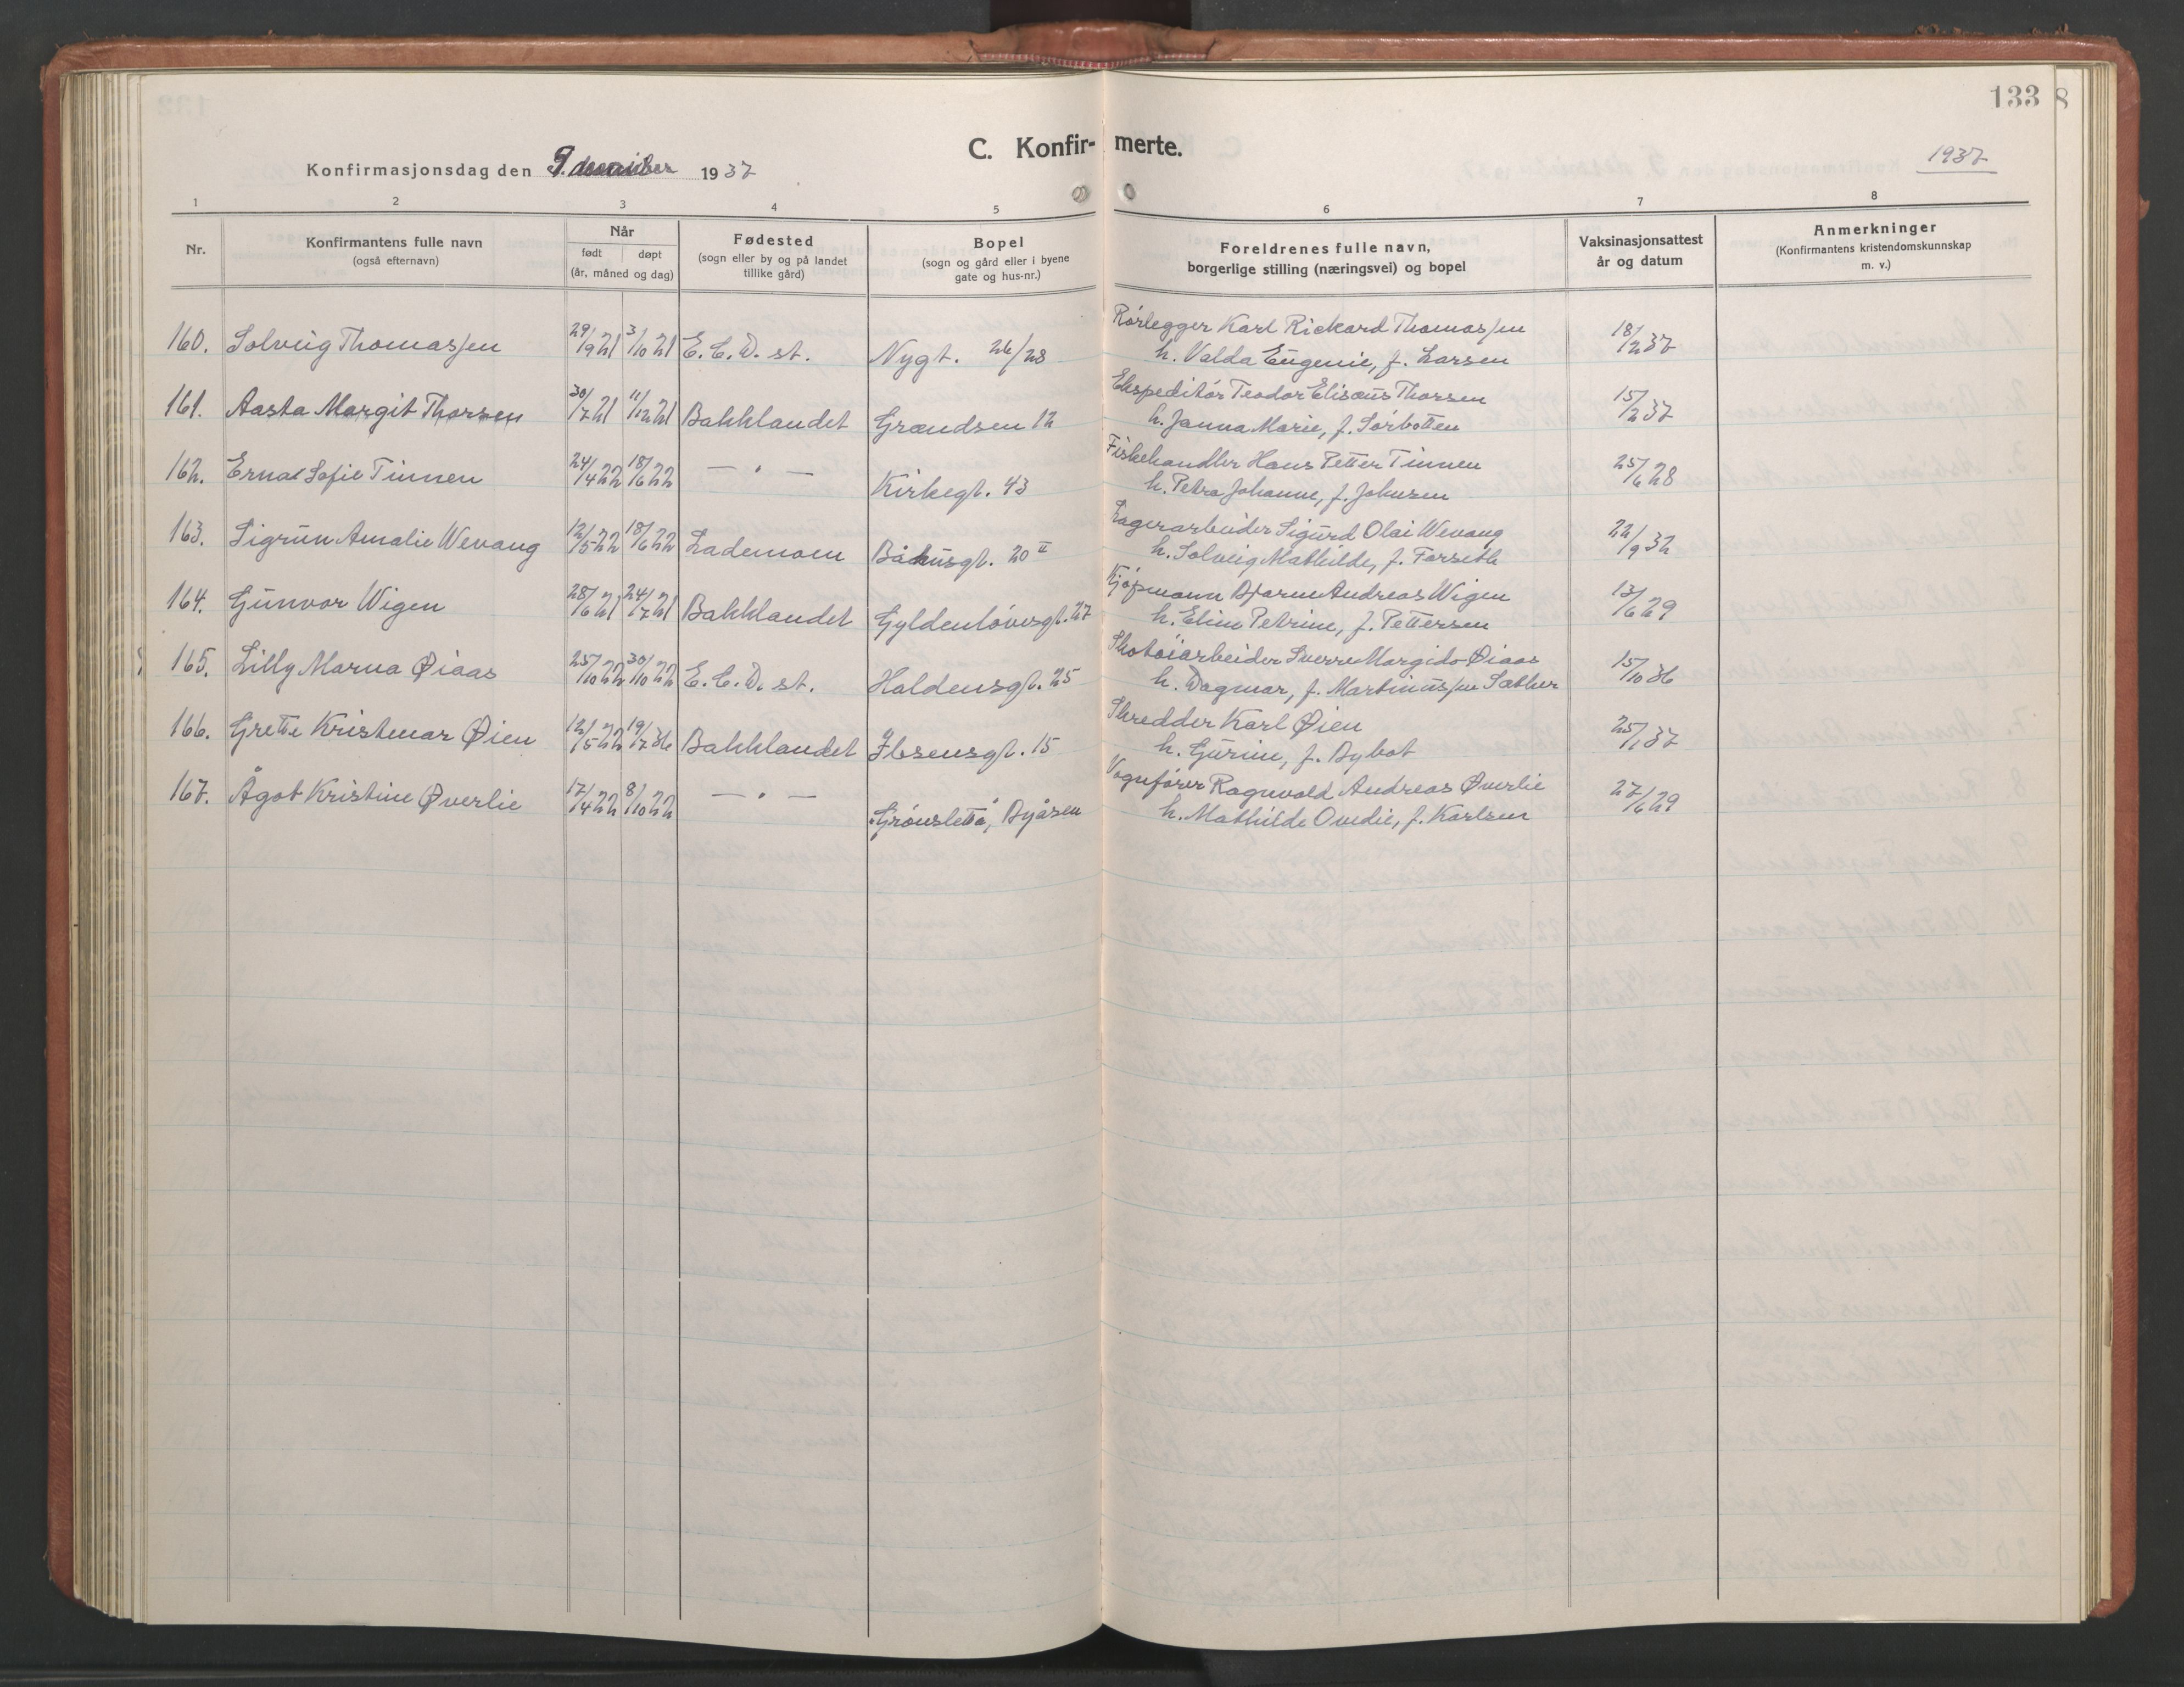 133 8
C. Konfir- merte.
Konfirmasjonsdag den 9. desember 1937
1937
1 2 3 4 5 6 7 8
Nr.
Konfirmantens fulle navn
(også efternavn)
Når
født døpt
(år, måned og dag)
Fødested
(sogn eller by og på landet
tillike gård)
Bopel
(sogn og gård eller i byene
gate og hus-nr.)
Foreldrenes fulle navn,
borgerlige stilling (næringsvei) og bopel
Vaksinasjonsattest
år og datum
Anmerkninger
(Konfirmantens kristendomskunnskap
m. v.)
Rørlegger Karl Rickard Thomassen
160. Solveig Thomassen 29/9 21 3/10 21 E. C. D. st. Nygt. 26/28 h. Valda Eugenie, f. Larsen 18/2 37
Ekspeditør Teodor Elisæus Thorsen
161. Aasta Margit Thorsen 30/7 21 11/12 21 Bakklandet Grændsen 12 h. Janna Marie, f. Sørbotten 15/2 37
Fiskehandler Hans Petter Tinnen
162. Erna Sofie Tinnen 24/4 22 18/6 22 — " — Kirkegt. 43 h. Petra Johanne, f. Johnsen 25/6 28
Lagerarbeider Sigurd Olai Wevang
163. Sigrun Amalie Wevang 12/5 22 18/6 22 Lademoen Båhusgt. 20 II h. Solveig Mathilde, f. Forseth 22/9 32
Kjøpmann Bjarne Andreas Wigen
164. Gunvor Wigen 28/6 21 24/7 21 Bakklandet Gyldenløvesgt. 27 h. Eline Petrine, f. Pettersen 13/6 29
Skotøiarbeider Sverre Margido Øiaas
165. Lilly Marna Øiaas 25/10 22 30/10 22 E. C. D. st. Haldensgt. 25 h. Dagmar, f. Martinussen Sæther 15/10 36
Skredder Karl Øien
166. Grethe Kristmar Øien 12/5 22 19/7 36 Bakklandet Ibsensgt. 15 h. Gurine, f. Bybot 25/1 37
Vognfører Ragnvald Andreas Øverlie
167. Ågot Kristine Øverlie 17/4 22 8/10 22 — " — "Grønsletta", Byåsen h. Mathilde Ovedie, f. Karlsen 27/6 29